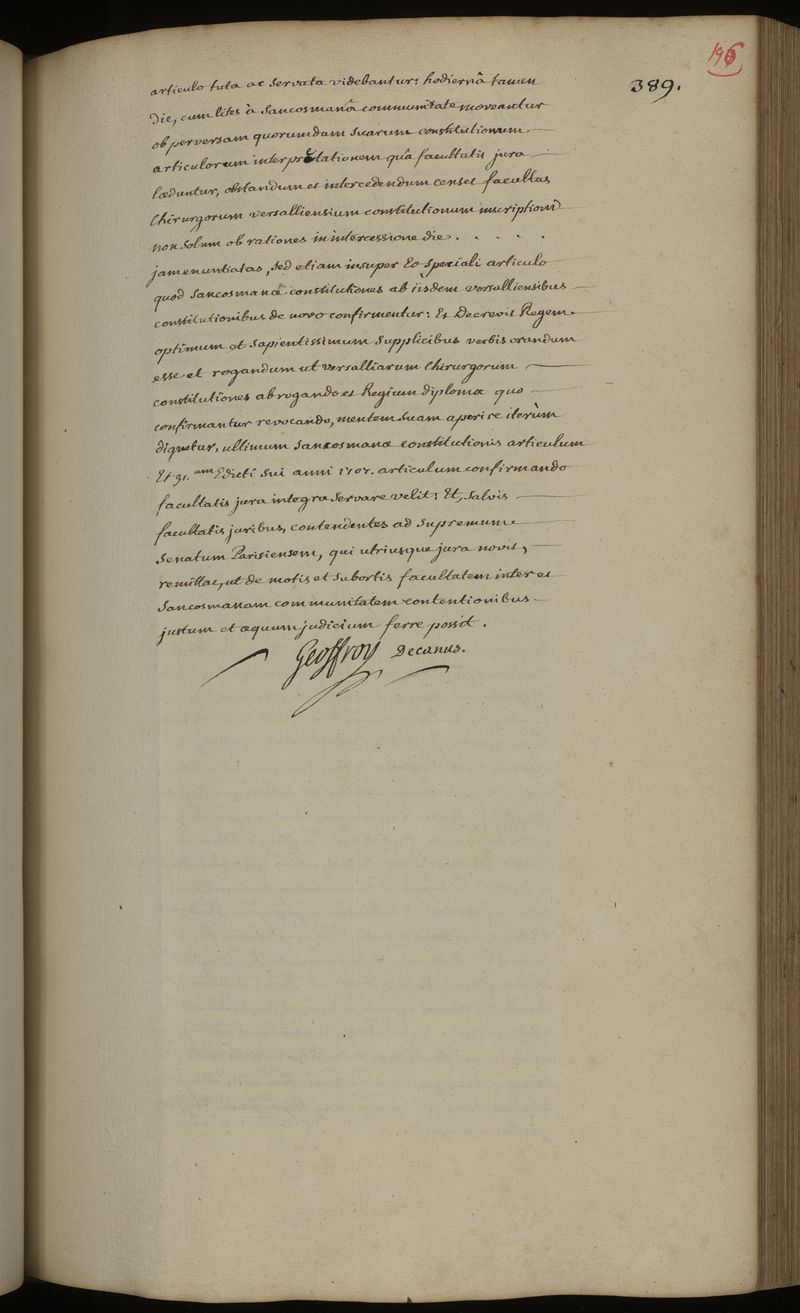 196
389.
articulo tuta ac servata videbantur: hodiernâ tamen
die, cum lites à Sancosmanâ communitate moveantur
ob perversam quorumdam suarum constitutionum
articulorum interpretationem quâ facultatis jura
læduntur, obstandum et intercedendum censet facultas
Chirurgorum versalliensium constitutionum inscriptioni
non solum ob rationes in intercessione die . . . . .
jam enuntiatas, sed etiam insuper eo speciali articulo
quod Sancosmanæ constitutiones ab iisdem versalliensibus
constitutionibus de novo confirmentur: Et Decrevit Regem
optimum et sapientissimum supplicibus verbis orandum
esse et rogandum ut versalliarum Chirurgorum
constitutiones abrogando et Regium diploma quo
confirmantur revocando, mentem suam aperire iterùm
dignetur, ultimum Sancosmanæ constitutionis articulum
Et 31.um Edicti sui anni 1707. articulum confirmando
facultatis jura integra servare velit; Et, salvis
facultatis juribus, contendentes ad supremum
Senatum Parisiensem, qui utriusque jura novit,
remittat, ut de motis et subortis facultatem inter et
Sancosmanam communitatem contentionibus
justum et æquum judicium ferre possit.
Geoffroy Decanus.